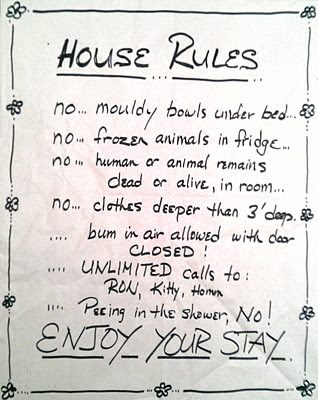 HOUSE RULES
no... mouldy bowls under bed...
no... frozen animals in fridge...
no... human or animal remains
dead or alive, in room...
no... clothes deeper than 3' deep.
.... bum in air allowed with door
CLOSED!
.... UNLIMITED calls to:
RON, Kitty, Homm
.... Peeing in the shower, No!
ENJOY YOUR STAY.